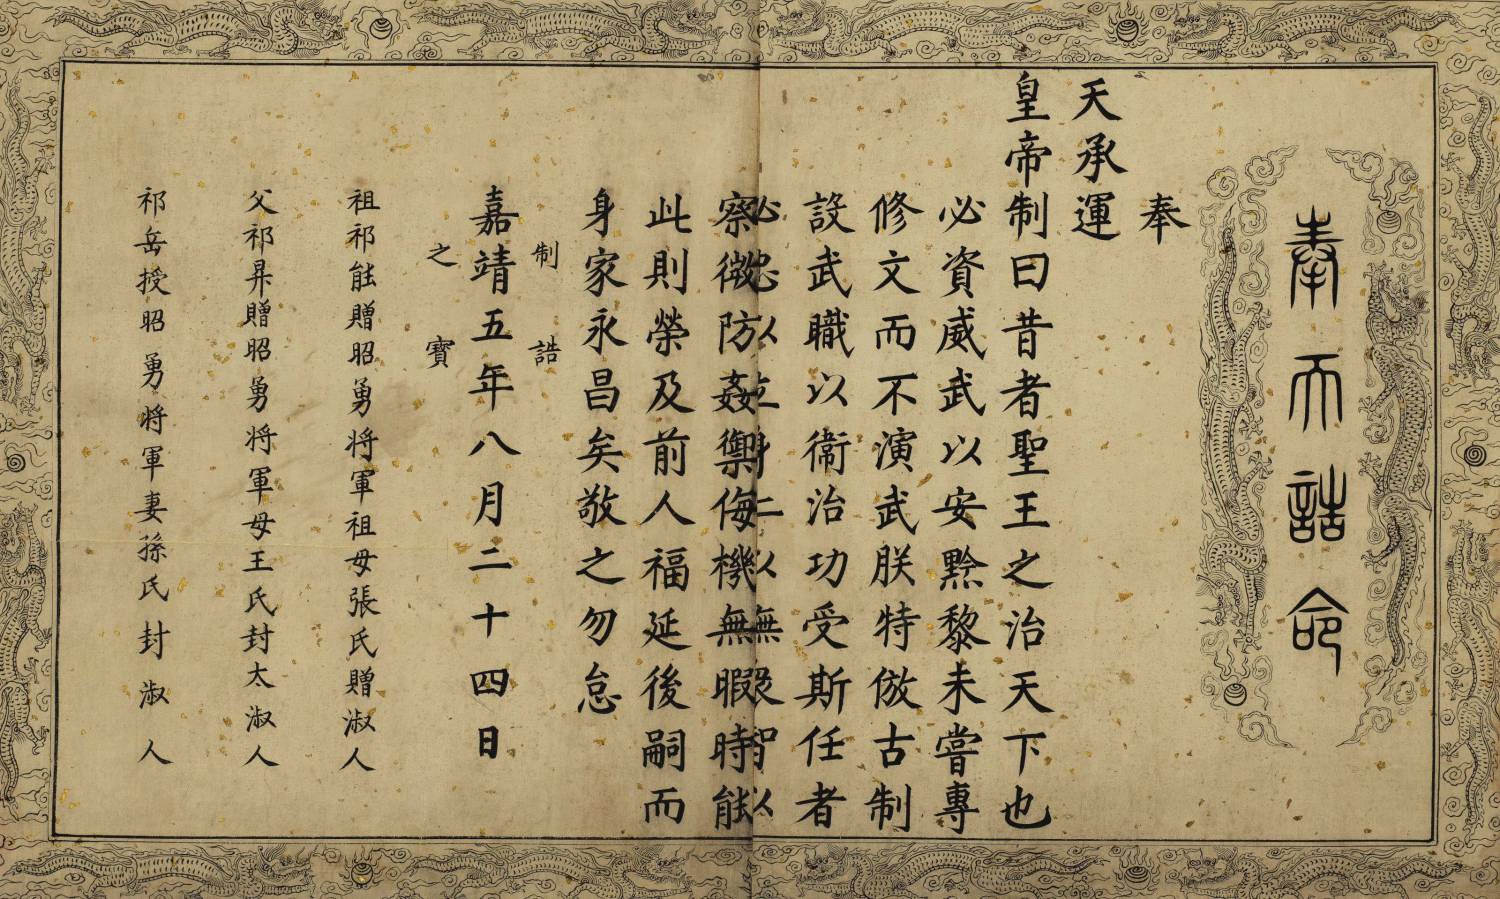 奉天誥命
奉
天承運
皇帝制曰昔者聖王之治天下也
必資威武以安黔黎未嘗專
修文而不演武朕特倣古制
設武職以衛治功受斯任者
必忠以立身仁以撫衆智以
察微防姦禦侮機無暇時能
此則榮及前人福延後嗣而
身家永昌矣敬之勿怠
制誥
嘉靖五年八月二十四日
之寶
祖祁能贈昭勇将軍祖母張氏贈淑人
父祁昇贈昭勇将軍母王氏封太淑人
祁岳授昭勇将軍妻孫氏封淑人